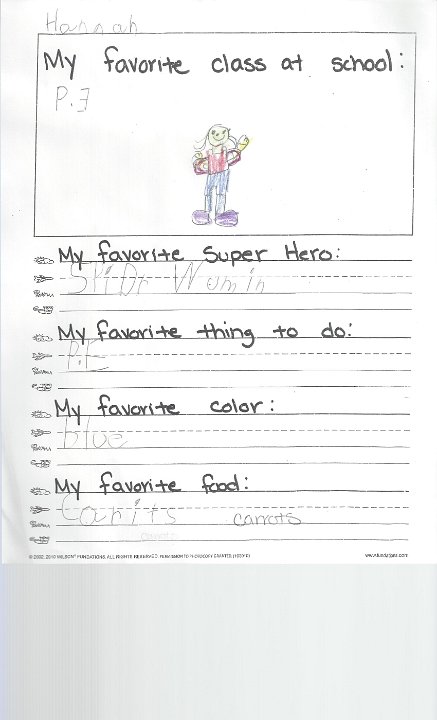 Hannah
My favorite class at school:
P.E
My favorite Super Hero:
SPiDr Womin
My favorite thing to do:
P.E
My favorite color:
blue
My favorite food:
Carits carrots
carrots
© 2002, 2010 WILSON
www.fundations.com